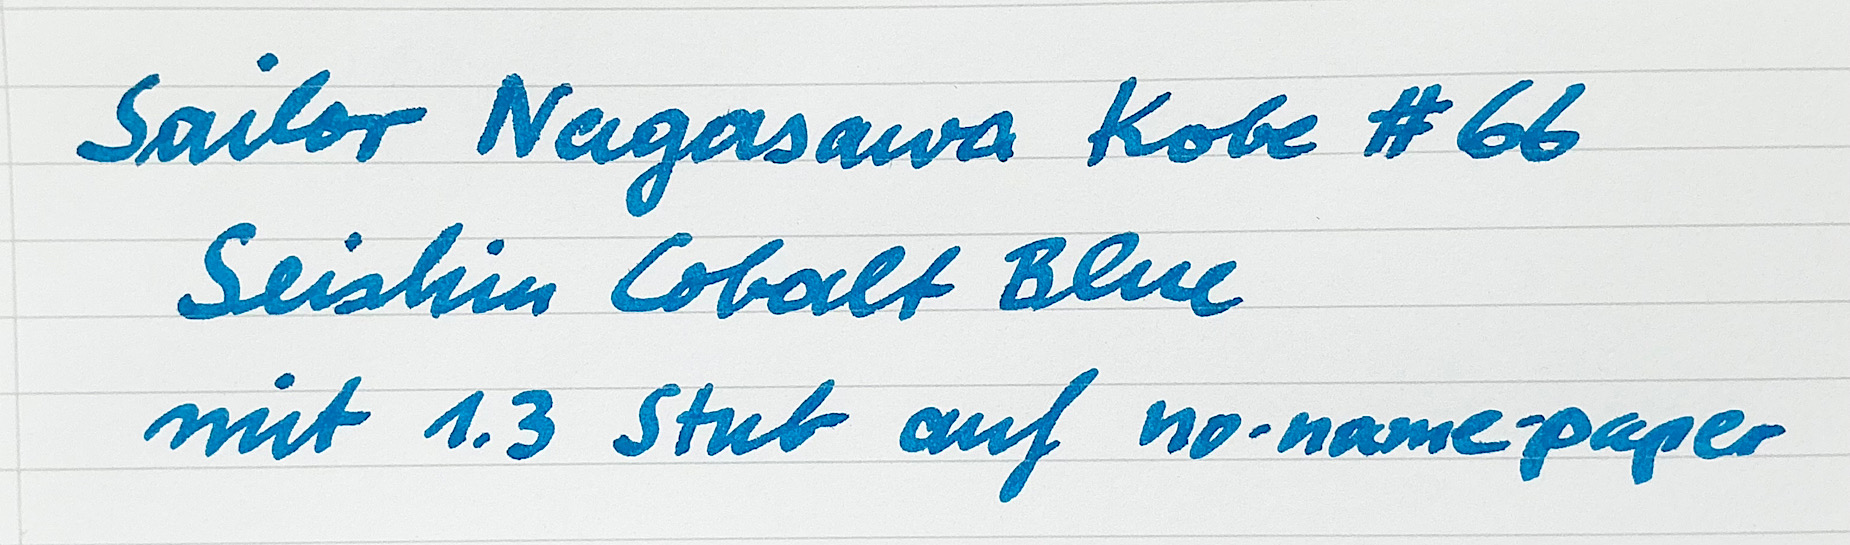 Sailor Nagasawa Kobe #66
Seishin Cobalt Blue
mit 1.3 Stub auf no-name-paper